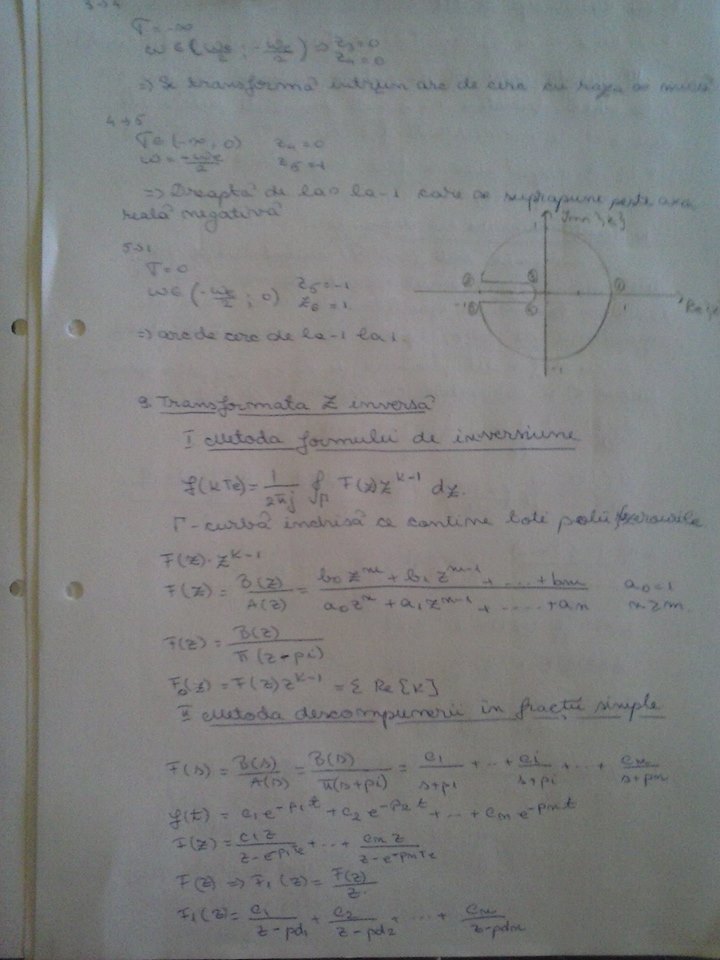 3→4
σ = -∞
ω ∈ (ωe/2 ; -ωe/2) ⇒ z3=0
z4=0
⇒ Se transformă într-un arc de cerc cu raza ∞ mică
4→5
σ ∈ (-∞, 0) z4=0
ω = -ωe/2 z5=-1
⇒ Dreaptă de la 0 la -1 care se suprapune peste axa
reală negativă
5→1
σ=0
ω ∈ (-ωe/2 ; 0) z5=-1
z6=1
⇒ arc de cerc de la -1 la 1.
Im {z}
1
② ③ ①
-1 ⑤ ④ 1
-1
9. Transformata Z inversă
I Metoda formulei de inversiune
f(kTe) = 1/2πj ∮Γ F(z) z^k-1 dz.
Γ - curbă închisă ce conține toți polii
F(z)·z^k-1
F(z) = B(z)/A(z) = b0 z^m + b1 z^m-1 + .... + bm / a0 z^n + a1 z^n-1 + ..... + an a0=1
n≥m
F(z) = B(z) / π(z-pi)
F0(z) = F(z) z^k-1 = Σ Re[k]
II Metoda descompunerii în fracții simple
F(s) = B(s)/A(s) = B(s)/π(s+pi) = c1/s+pi + .. + ci/s+pi + ... + cn/s+pn
f(t) = c1 e^-p1t + c2 e^-p2t + .. + cn e^-pnt
F(z) = c1 z/z-e^-p1Te + .. + cn z/z-e^-pnTe
F(z) ⇒ F1(z) = F(z)/z
F1(z) = c1/z-pd1 + c2/z-pd2 + ... + cn/z-pdn